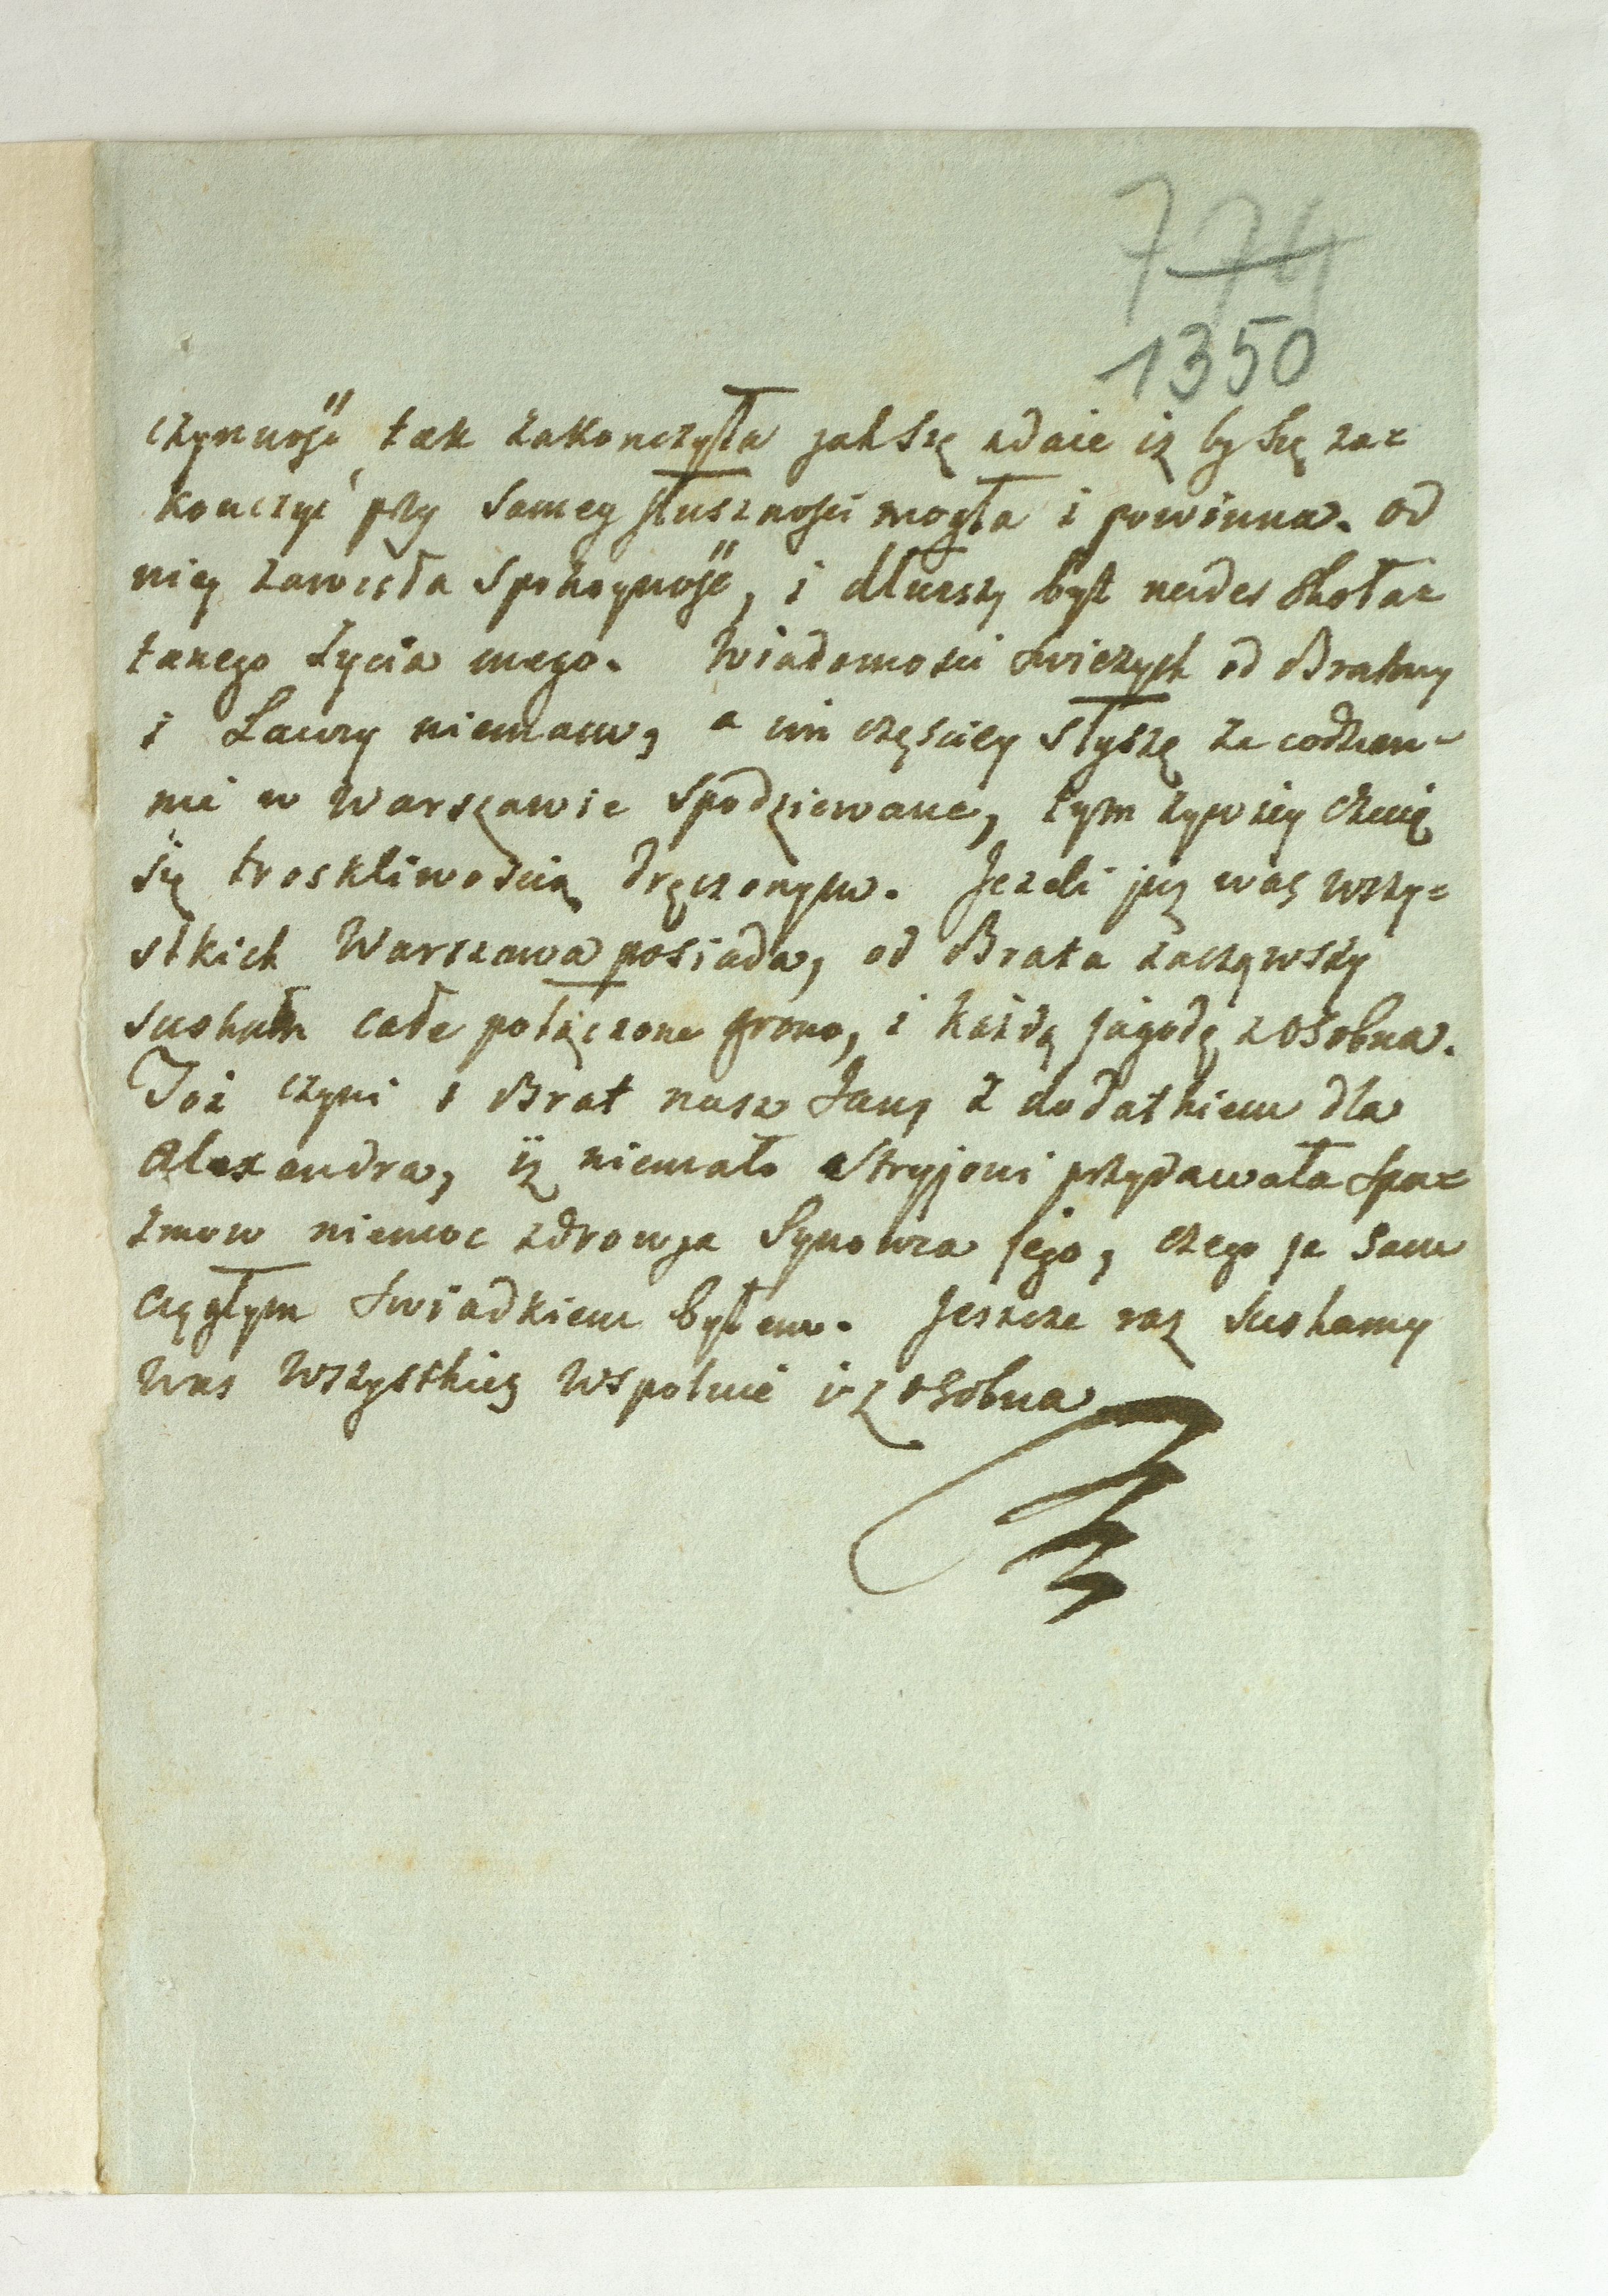 774
1350
czynność tak zakonczyła jak się zdaie iż by się za=
konczyć przy samey słuszności mogła i powinna. od
niey zawisła spokoyność, i dłuższy byt nader skoła=
tanego życia mego. Wiadomości świeżych od Bratowy
i Laury niemam, a im częściey słyszę że codzien=
nie w Warszawie spodziewane, tym żywiey czuię
się troskliwością dręczonym. Jeżeli już was wszy=
stkich Warszawa posiada, od Brata zacząwszy
sciskam całe połączone grono, i każdą jagodę z osobna.
Toż czyni i Brat nasz Jans z dodatkiem dla
Alexandra, iż niemało Stryjowi przydawała spa=
zmow niemoc zdrowia Synowca jego, czego ja sam
ciągłym świadkiem byłem. Jeszcze raz sciskamy
was wszystkich wspolnie i z osobna